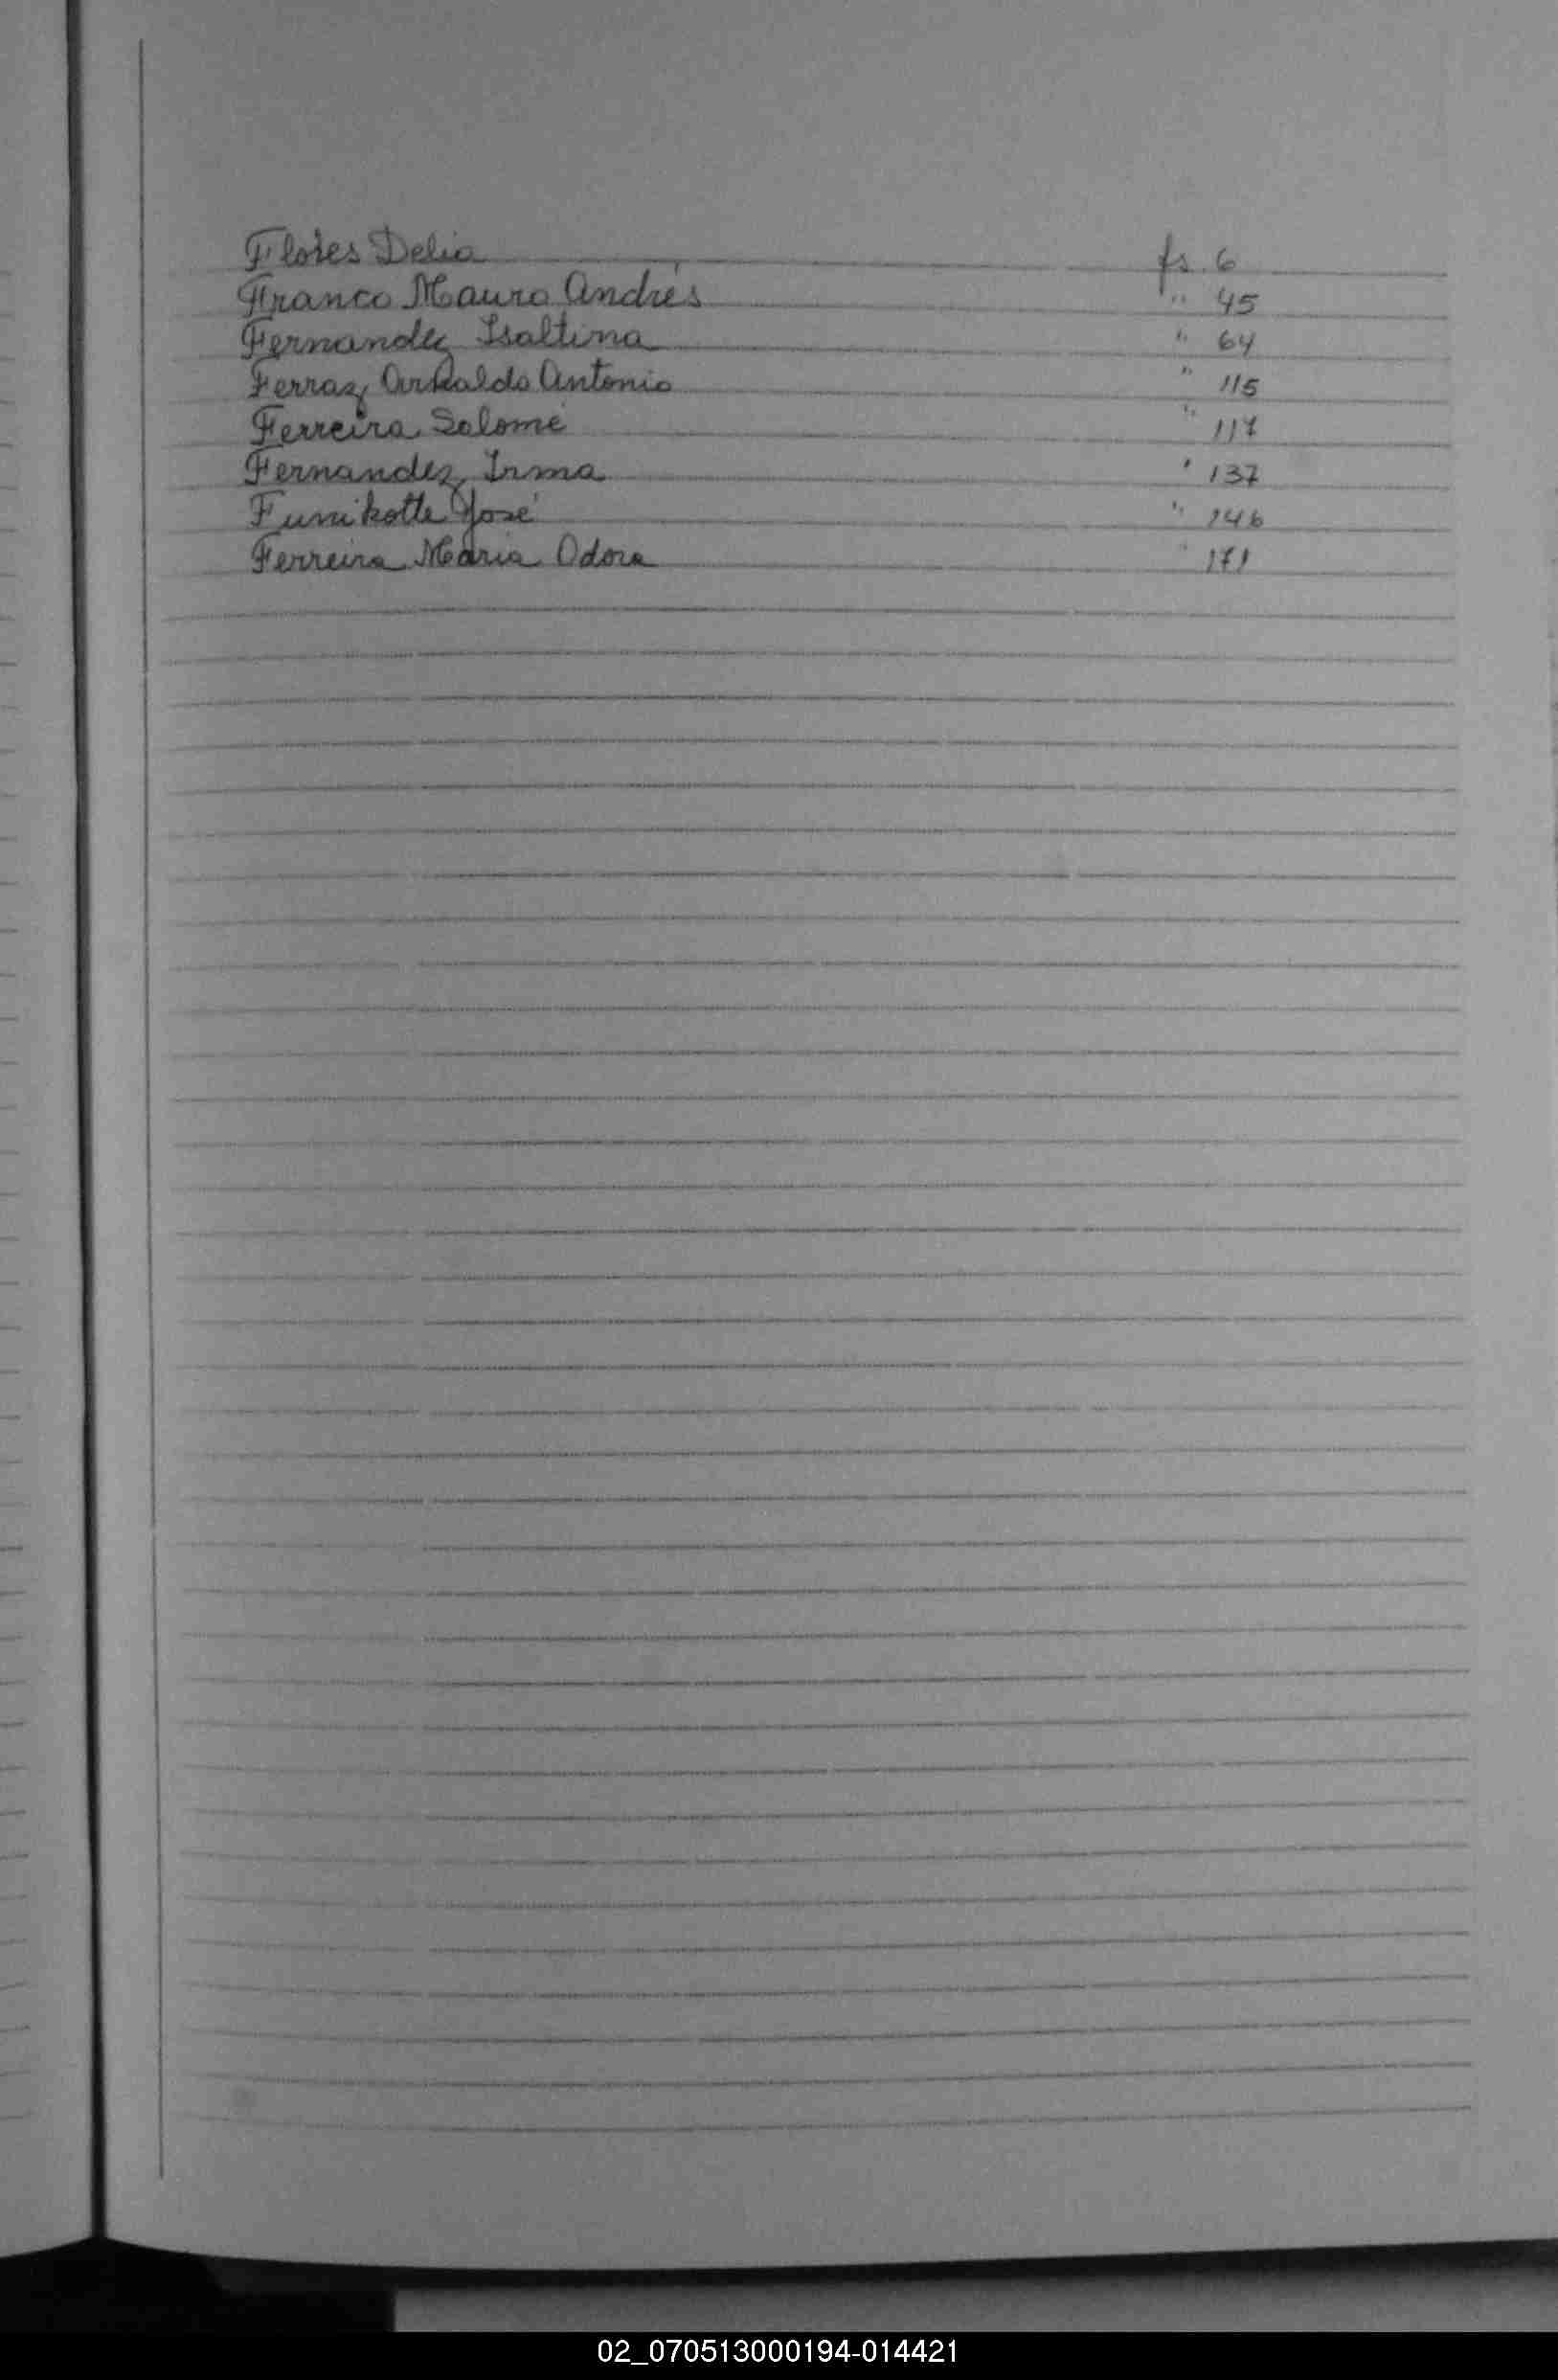 Flores Delia fs. 6
Franco Mauro Andrés " 45
Fernandez Isaltina " 64
Ferraz, Arnaldo Antonio " 115
Ferreira Salomé " 117
Fernandez, Irma " 137
José " 146
Ferreira Maria Odora " 171
02_070513000194-014421